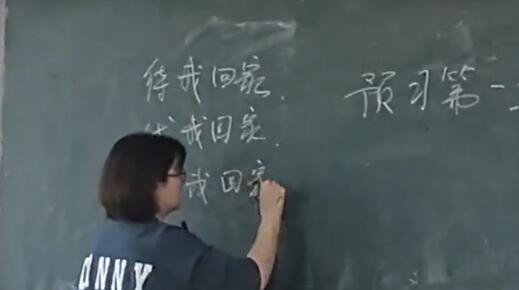 待我回家.
我回家.
我回家
预习第一
NNY